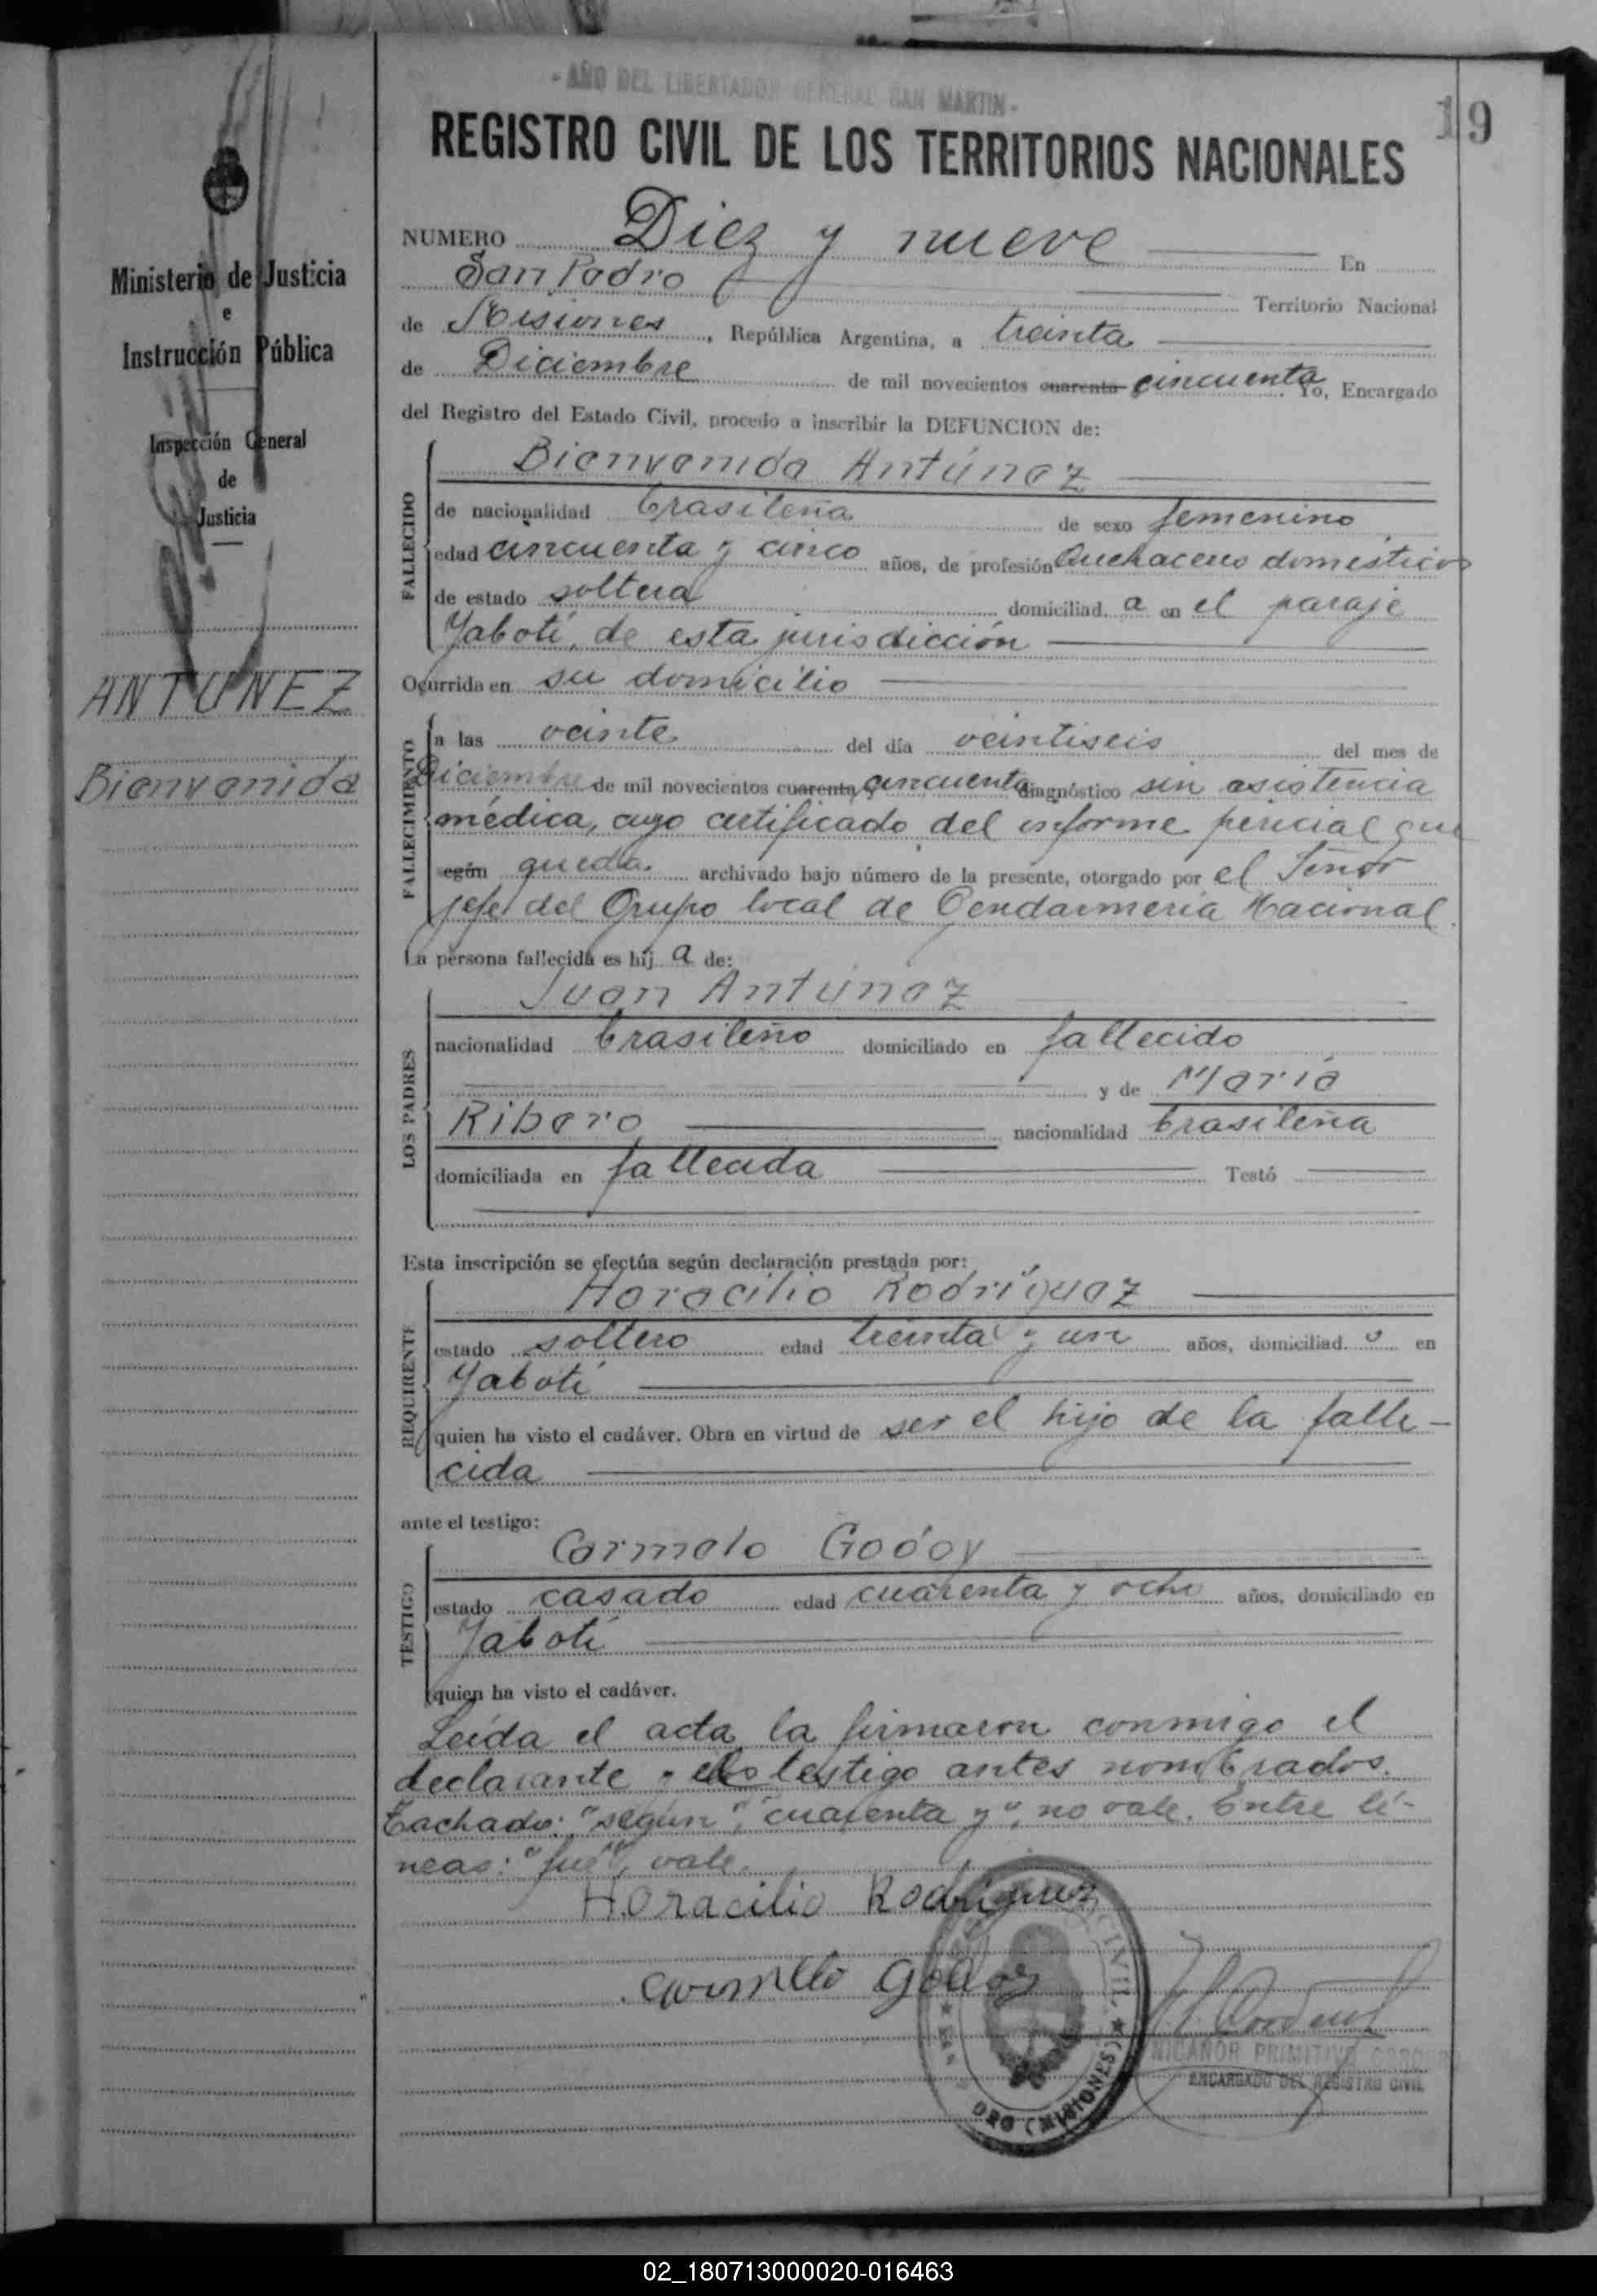 - AÑO DEL LIBERTADOR GENERAL SAN MARTIN -
19
REGISTRO CIVIL DE LOS TERRITORIOS NACIONALES
Ministerio de Justicia
e
Instrucción Pública
Inspección General
de
Justicia
ANTUNEZ
Bienvenida
NUMERO Diez y nueve En
San Pedro Territorio Nacional
de Misiones, República Argentina, a treinta
de Diciembre de mil novecientos cuarenta cincuenta Yo, Encargado
del Registro del Estado Civil, procedo a inscribir la DEFUNCION de:
FALLECIDO
Bienvenida Antúnez
de nacionalidad brasileña de sexo femenino
edad cincuenta y cinco años, de profesión Quehaceres domésticos
de estado soltera domiciliad a en el paraje
Yabotí, de esta jurisdicción
Ocurrida en su domicilio
FALLECIMIENTO
a las veinte del día veintiseis del mes de
Diciembre de mil novecientos cuarenta y cincuenta diagnóstico sin asistencia
médica, cuyo certificado del informe pericial que
según queda archivado bajo número de la presente, otorgado por el Señor
jefe del Grupo local de Gendarmería Nacional.
La persona fallecida es hij a de:
LOS PADRES
Juan Antúnez
nacionalidad brasileño domiciliado en fallecido
y de María
Ribero nacionalidad brasileña
domiciliada en fallecida Testó
Esta inscripción se efectúa según declaración prestada por:
REQUIRENTE
Horacilio Rodríguez
estado soltero edad treinta y un años, domiciliad o en
Yabotí
quien ha visto el cadáver. Obra en virtud de ser el hijo de la falle-
cida
ante el testigo:
TESTIGO
Carmelo Godoy
estado casado edad cuarenta y ocho años, domiciliado en
Yabotí
quien ha visto el cadáver.
Leída el acta la firmaron conmigo el
declarante y testigo antes nombrados.
Tachado: "según", "cuarenta y", no vale. Entre lí-
neas: "fué", vale.
Horacilio Rodriguez
Carmelo Godoy
CIVIL ★
DRO (MISIONES)
NICANOR PRIMITIVO
ENCARGADO DEL REGISTRO CIVIL
02_180713000020-016463